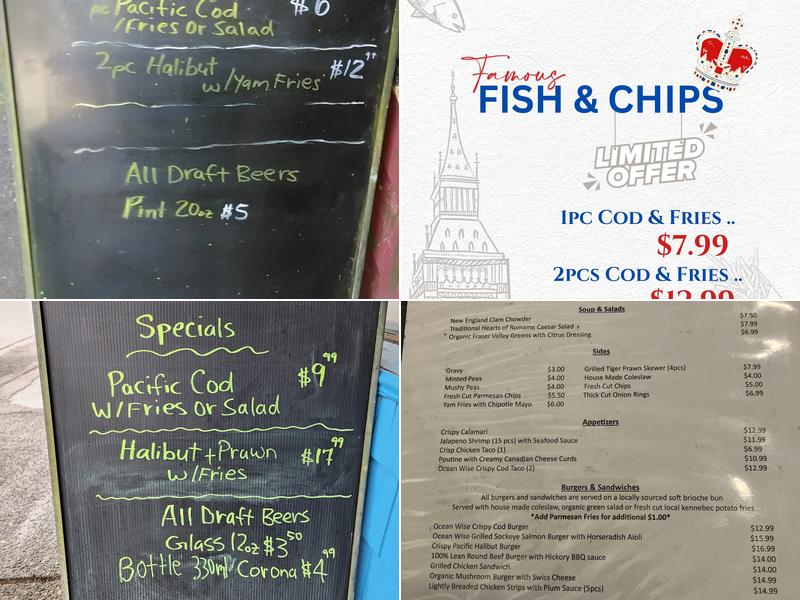 pc Pacific Cod $6
/Fries Or Salad
2pc Halibut
w/Yam Fries $12⁹⁹
All Draft Beers
Pint 20oz $5
Famous
FISH & CHIPS
LIMITED
OFFER
1PC COD & FRIES ..
$7.99
2PCS COD & FRIES ..
$12.99
Specials
Pacific Cod $9⁹⁹
W/Fries Or Salad
Halibut + Prawn $17⁹⁹
w/Fries
All Draft Beers
Glass 12oz $3⁵⁰
Bottle 330ml Corona $4⁹⁹
Soup & Salads
New England Clam Chowder $7.50
Traditional Hearts of Romaine Caesar Salad $7.99
* Organic Fraser Valley Greens with Citrus Dressing $6.99
Sides
Gravy $3.00
Minted Peas $4.00
Mushy Peas $4.00
Fresh Cut Parmesan Chips $5.50
Yam Fries with Chipotle Mayo $6.00
Grilled Tiger Prawn Skewer (4pcs) $7.99
House Made Coleslaw $4.00
Fresh Cut Chips $5.00
Thick Cut Onion Rings $6.99
Appetizers
Crispy Calamari $12.99
Jalapeno Shrimp (15 pcs) with Seafood Sauce $11.99
Crisp Chicken Taco (1) $6.99
Poutine with Creamy Canadian Cheese Curds $10.99
Ocean Wise Crispy Cod Taco (2) $12.99
Burgers & Sandwiches
All burgers and sandwiches are served on a locally sourced soft brioche bun
Served with house made coleslaw, organic green salad or fresh cut local kennebec potato fries
*Add Parmesan Fries for additional $1.00*
Ocean Wise Crispy Cod Burger $12.99
Ocean Wise Grilled Sockeye Salmon Burger with Horseradish Aioli $15.99
Crispy Pacific Halibut Burger $16.99
100% Lean Round Beef Burger with Hickory BBQ sauce $14.00
Grilled Chicken Sandwich $14.00
Organic Mushroom Burger with Swiss Cheese $14.99
Lightly Breaded Chicken Strips with Plum Sauce (5pcs) $14.99